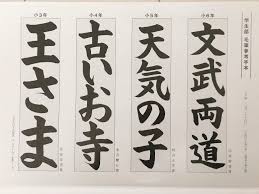 学生部 毛筆参考手本
小6年
文武両道
小5年
天気の子
小4年
古いお寺
小3年
王さま